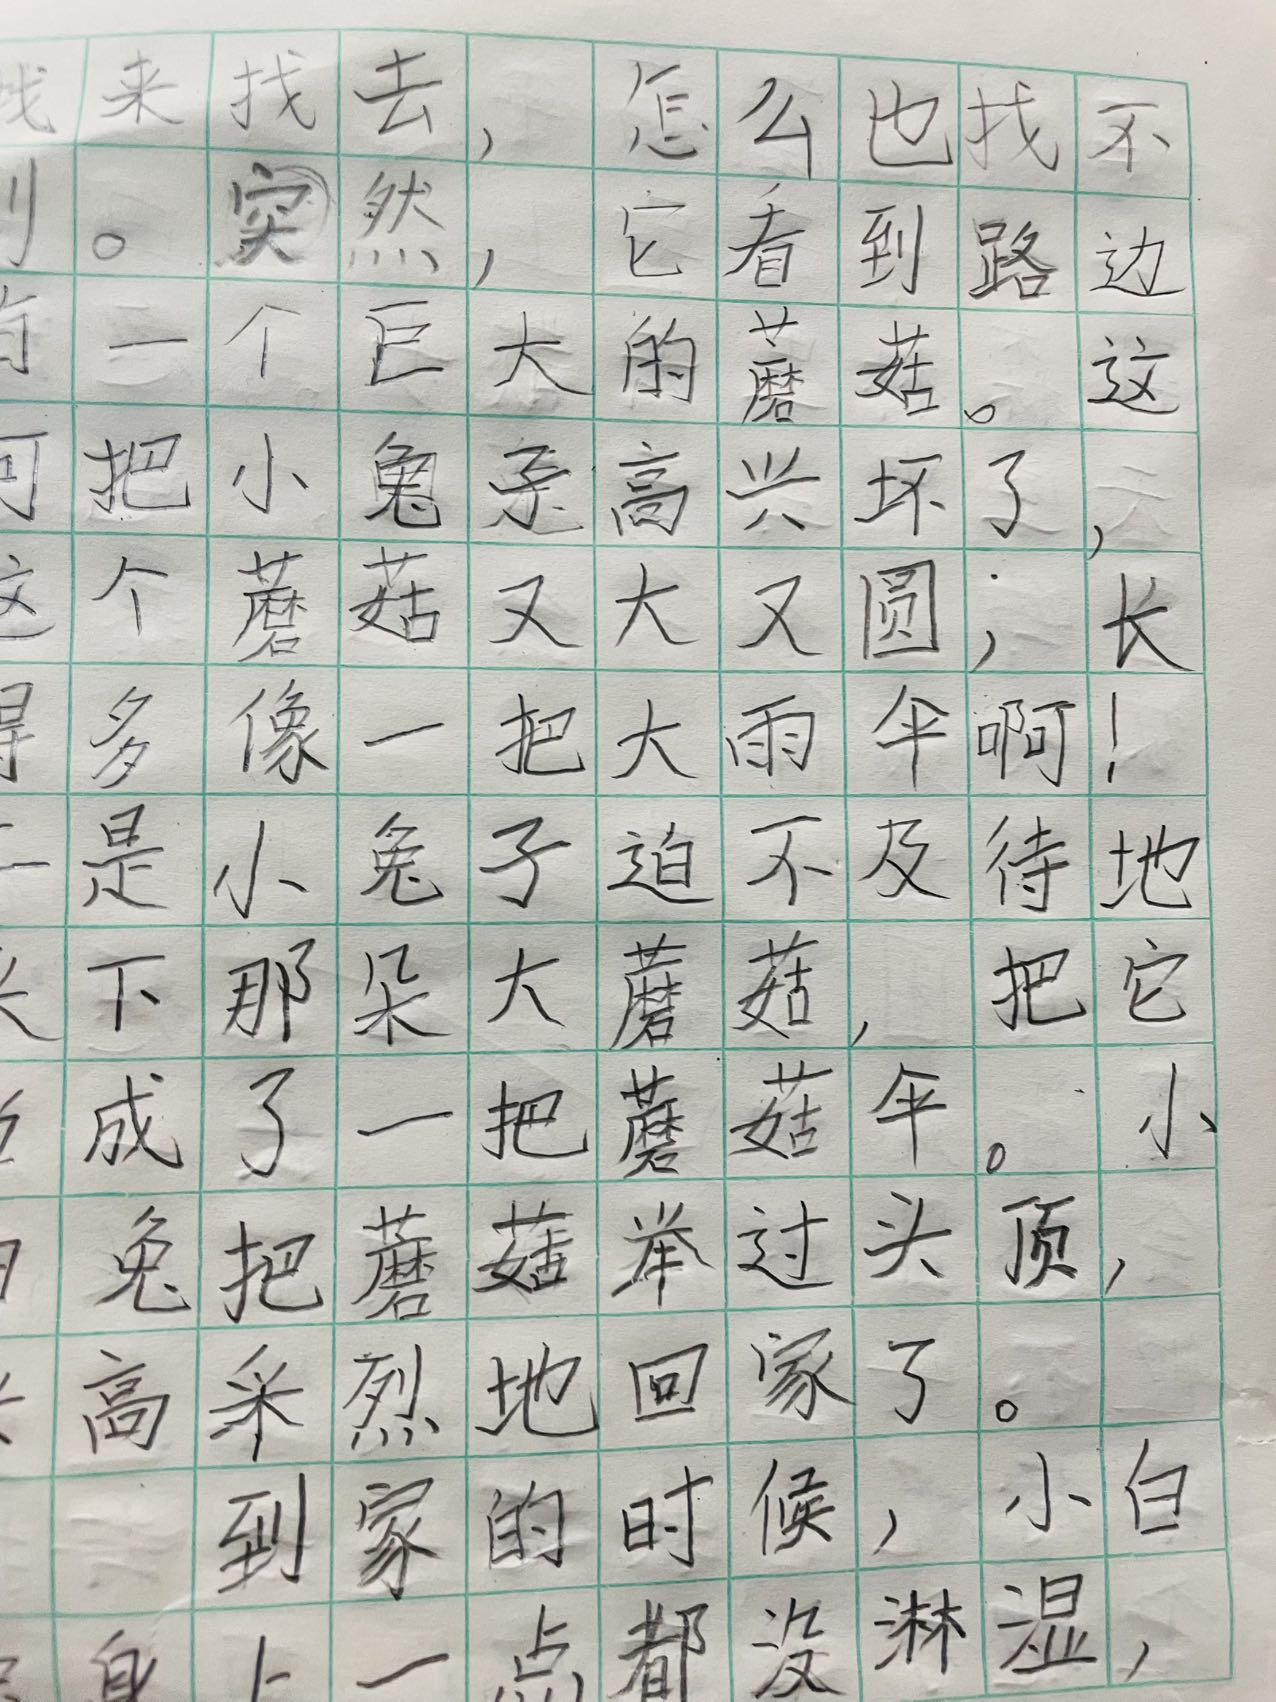 找来找去，怎么也找不
到。突然，它看到路边
有一个巨大的蘑菇。这
可把小兔子高兴坏了，
这个蘑菇又大又圆，长
得多像一把大雨伞啊！
是小兔子迫不及待地
下那朵大蘑菇，把它
成了一把蘑菇伞。小
兔把蘑菇举过头顶，
高采烈地回家了。
到家的时候，小白
身上一点都没淋湿，